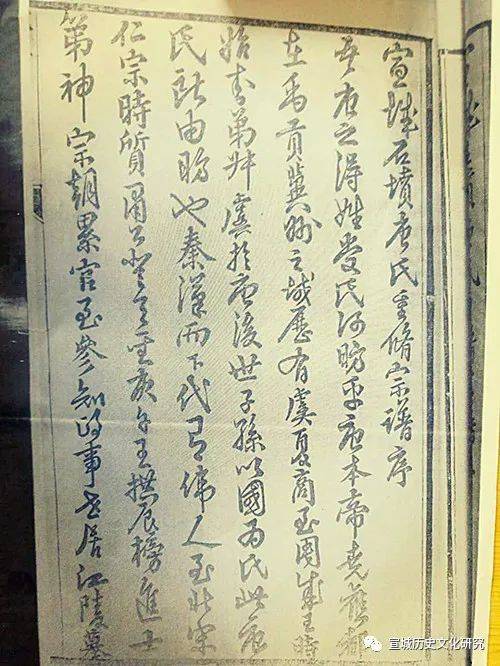 宣城石墳唐氏重脩宗譜序
吾唐之得姓受氏何昉乎唐本帝堯舊都
在禹貢冀州之域歷有虞夏商至周成王時
始封弟叔虞於唐後世子孫以國為氏此唐
氏所由昉也秦漢而下代有偉人至北宋
仁宗時質肅公登天聖庚午王拱辰榜進士
第神宗朝累官至參知政事世居江陵墓
宣城历史文化研究